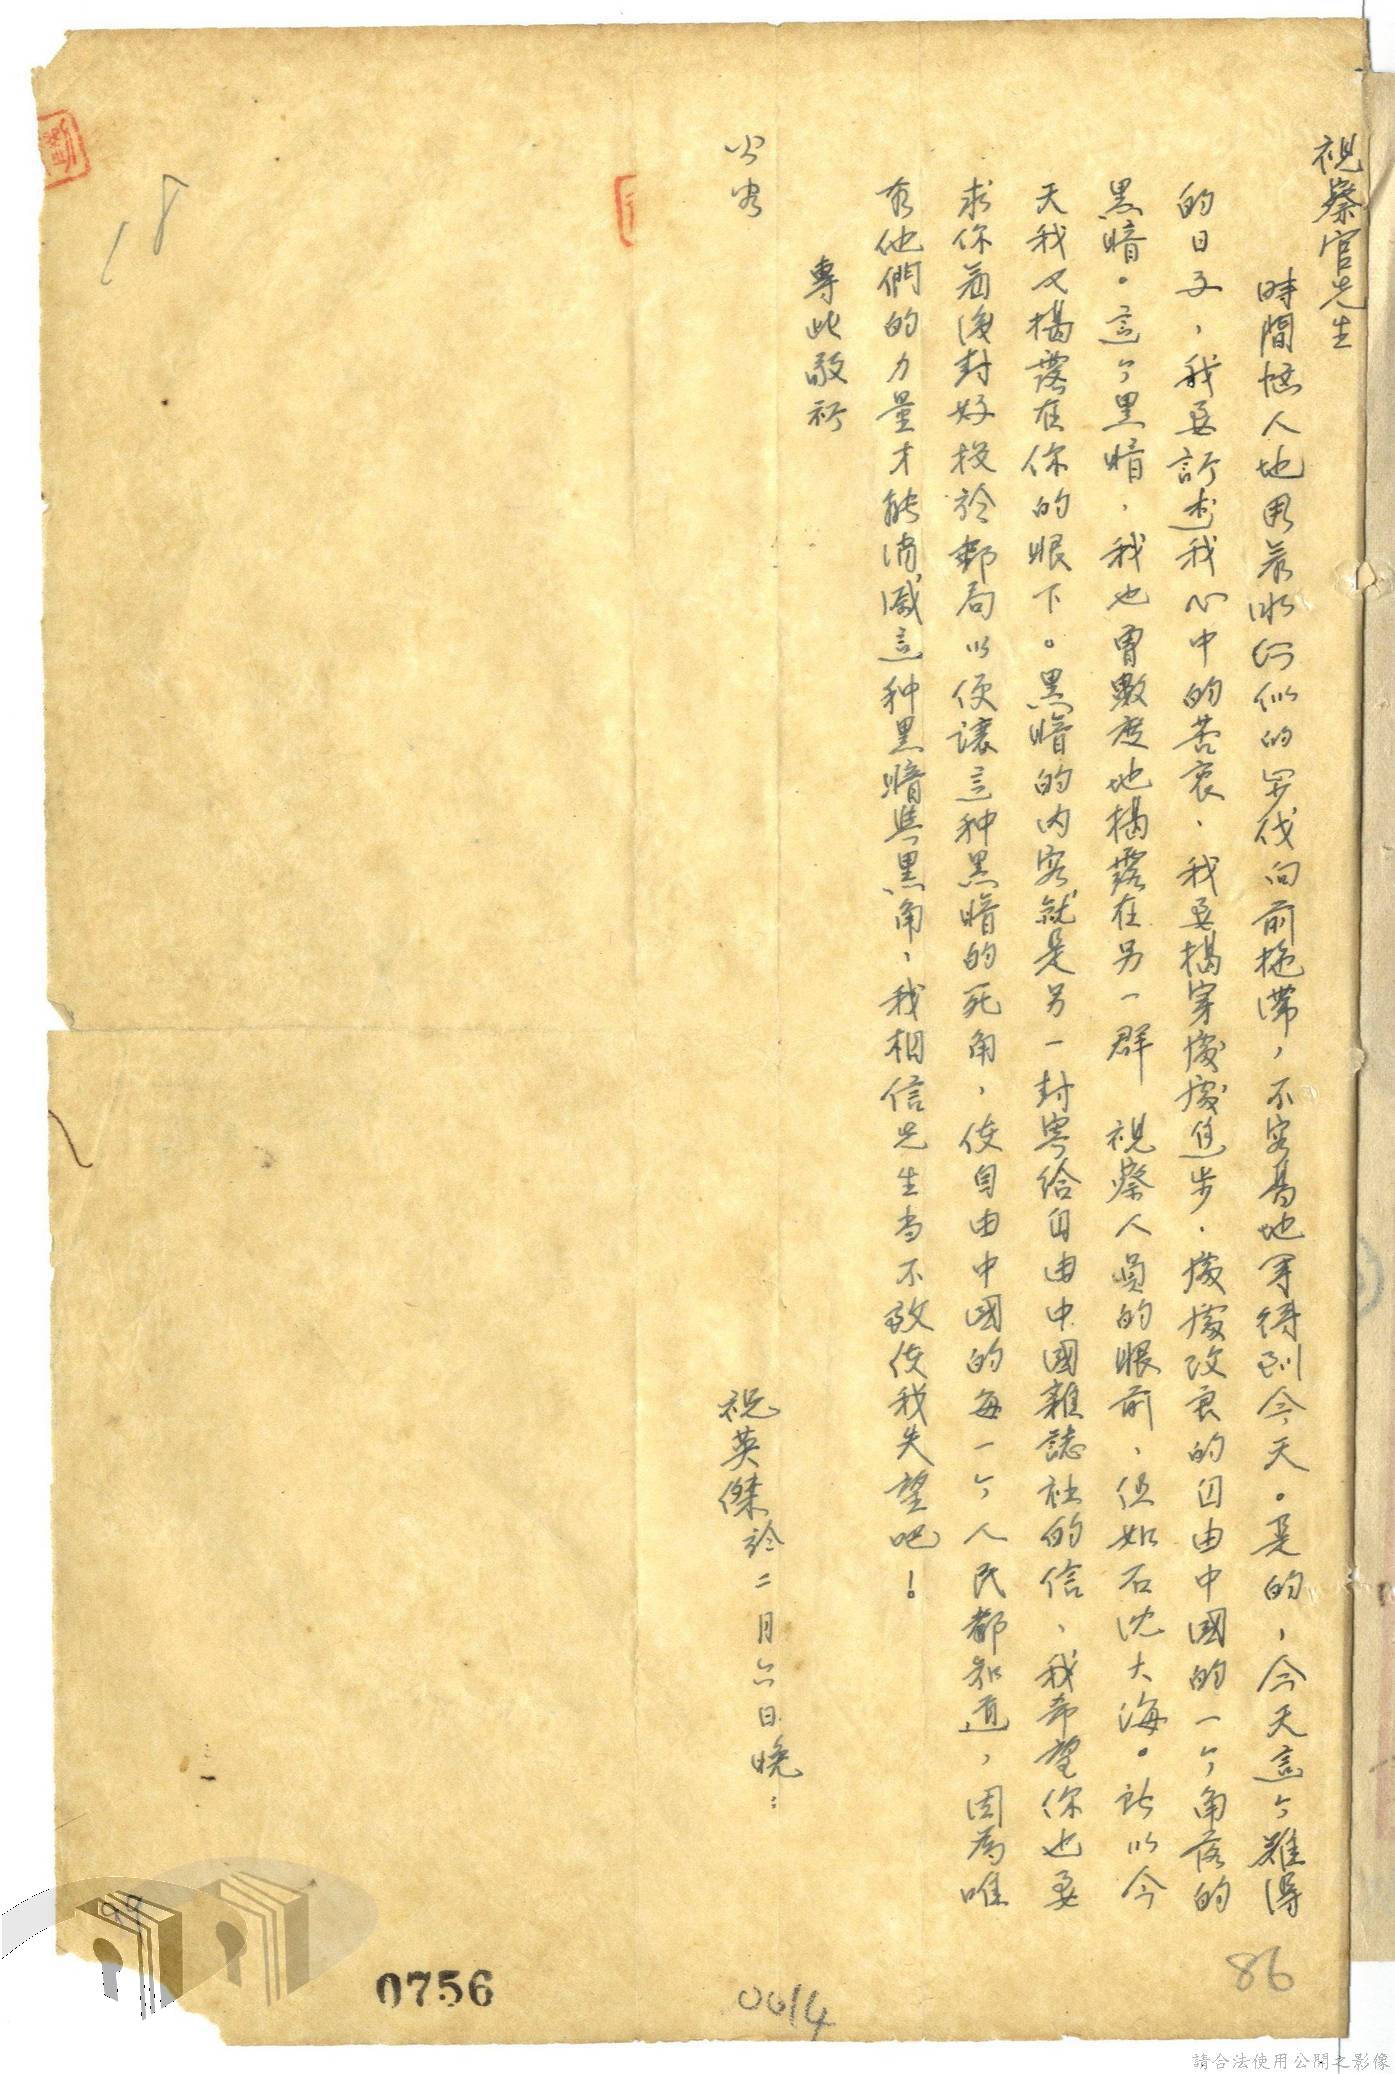 視察官先生
時間惱人地用着冰河似的步伐向前拖滯，不容易地罕得到今天。是的，今天這个難得
的日子，我要訴述我心中的苦衷、我要揭穿處處進步．處處改良的自由中國的一个角落的
黑暗。這个黑暗，我也曾數度地揭露在另一群 視察人員的眼前、但如石沈大海。所以今
天我又揭露在你的眼下。黑暗的內容就是另一封寄給自由中國雜誌社的信、我希望你也要
求你着後封好投於郵局以便讓這种黑暗的死角，使自由中國的每一个人民都知道，因為唯
有他們的力量才能消滅這种黑暗與黑角，我相信先生当不致使我失望吧！
專此敬祈
公安
祝英傑於二月六日晚：
18
99
0756
0614
86
請合法使用公開之影像